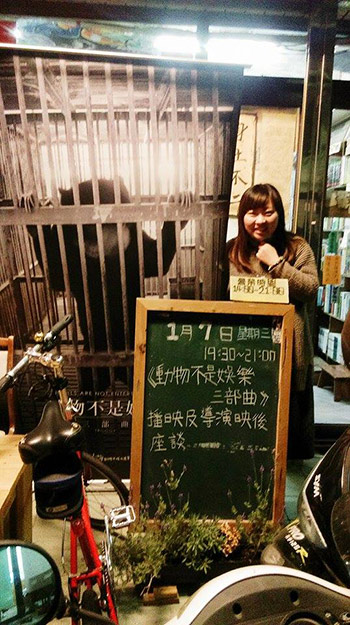 營業時間
14:00-21:00
1月7日星期三
19:30~21:00
《動物不是娛樂
三部曲》
播映及導演映後
座談
物不是娛
三部曲